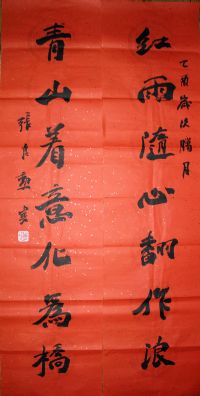 乙酉歲次腊月
红雨隨心翻作浪
青山着意化為橋